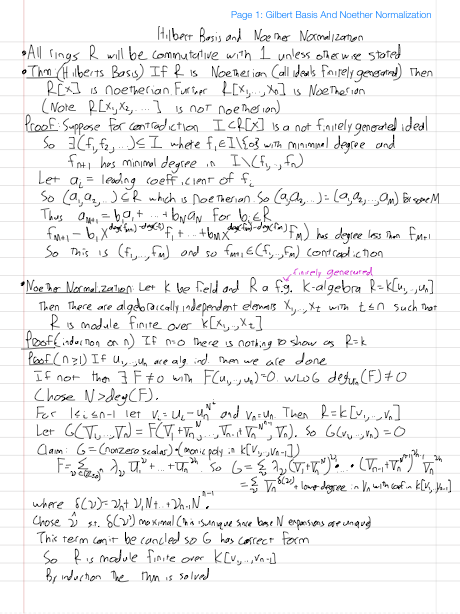 Page 1: Gilbert Basis And Noether Normalization
Hilbert Basis and Noether Normalization
•All rings R will be commutative with 1 unless otherwise stated
•Thm (Hilberts Basis) If R is Noetherian (all ideals finitely generated) Then
R[x] is noetherian. Further R[x₁,...,xₙ] is Noetherian
(Note R[x₁,x₂,.....] is not noetherian)
Proof: Suppose for contradiction I⊂R[x] is a not finitely generated ideal
So ∃(f₁,f₂,...)⊆I where f₁∈I\{0} with minimal degree and
fₙ₊₁ has minimal degree in I\(f₁,..,fₙ)
Let aᵢ = leading coefficient of fᵢ
So (a₁,a₂,...)⊆R which is noetherian. So (a₁,a₂,...)=(a₁,a₂,...,aₘ) for some M
Thus aₘ₊₁ = b₁a₁+...+bₘaₘ for bᵢ∈R
fₘ₊₁-b₁X^{deg(fₘ₊₁)-deg(f₁)}f₁+...+bₘX^{deg(fₘ₊₁)-deg(fₘ)}fₘ) has degree less than fₘ₊₁
So this is (f₁,..,fₘ) and so fₘ₊₁∈(f₁,..,fₘ) contradiction
finitely generated
•Noether Normalization: Let k be field and R a f.g. k-algebra R=k[u₁,..,uₙ]
Then there are algebraically independent elements X₁,..,Xₜ with t≤n such that
R is module finite over k[X₁,..,Xₜ]
Proof (induction on n) If n=0 there is nothing to show as R=k
Proof (n≥1) If u₁,..,uₙ are alg ind. then we are done
If not then ∃ F≠0 with F(u₁,..,uₙ)=0. WLOG deg_{uₙ}(F)≠0
Chose N>deg(F).
For 1≤i≤n-1 let vᵢ=uᵢ-uₙ^{Nⁱ} and vₙ=uₙ. Then R=k[v₁,..,vₙ]
Let G(V₁,..,Vₙ)=F(V₁+Vₙᴺ,...,Vₙ₋₁+Vₙ^{Nⁿ⁻¹},Vₙ). So G(v₁,..,vₙ)=0
Claim: G=(nonzero scalar)•(monic poly in k[v₁,..,vₙ₋₁])
So G=Σ λᵥ(V₁+Vₙᴺ)^{ν₁}...(Vₙ₋₁+Vₙ^{Nⁿ⁻¹})^{νₙ₋₁}Vₙ^{νₙ}
=Σ Vₙ^{δ(ν)}+lower degree in Vₙ with coef in k[V₁,..,Vₙ₋₁]
where δ(ν)=νₙ+ν₁N+..+νₙ₋₁Nⁿ⁻¹
Chose ν̂ s.t. δ(ν') maximal (this is unique since base N expansions are unique)
This term can't be cancled so G has correct form
So R is module finite over k[v₁,..,vₙ₋₁]
By induction the thm is solved